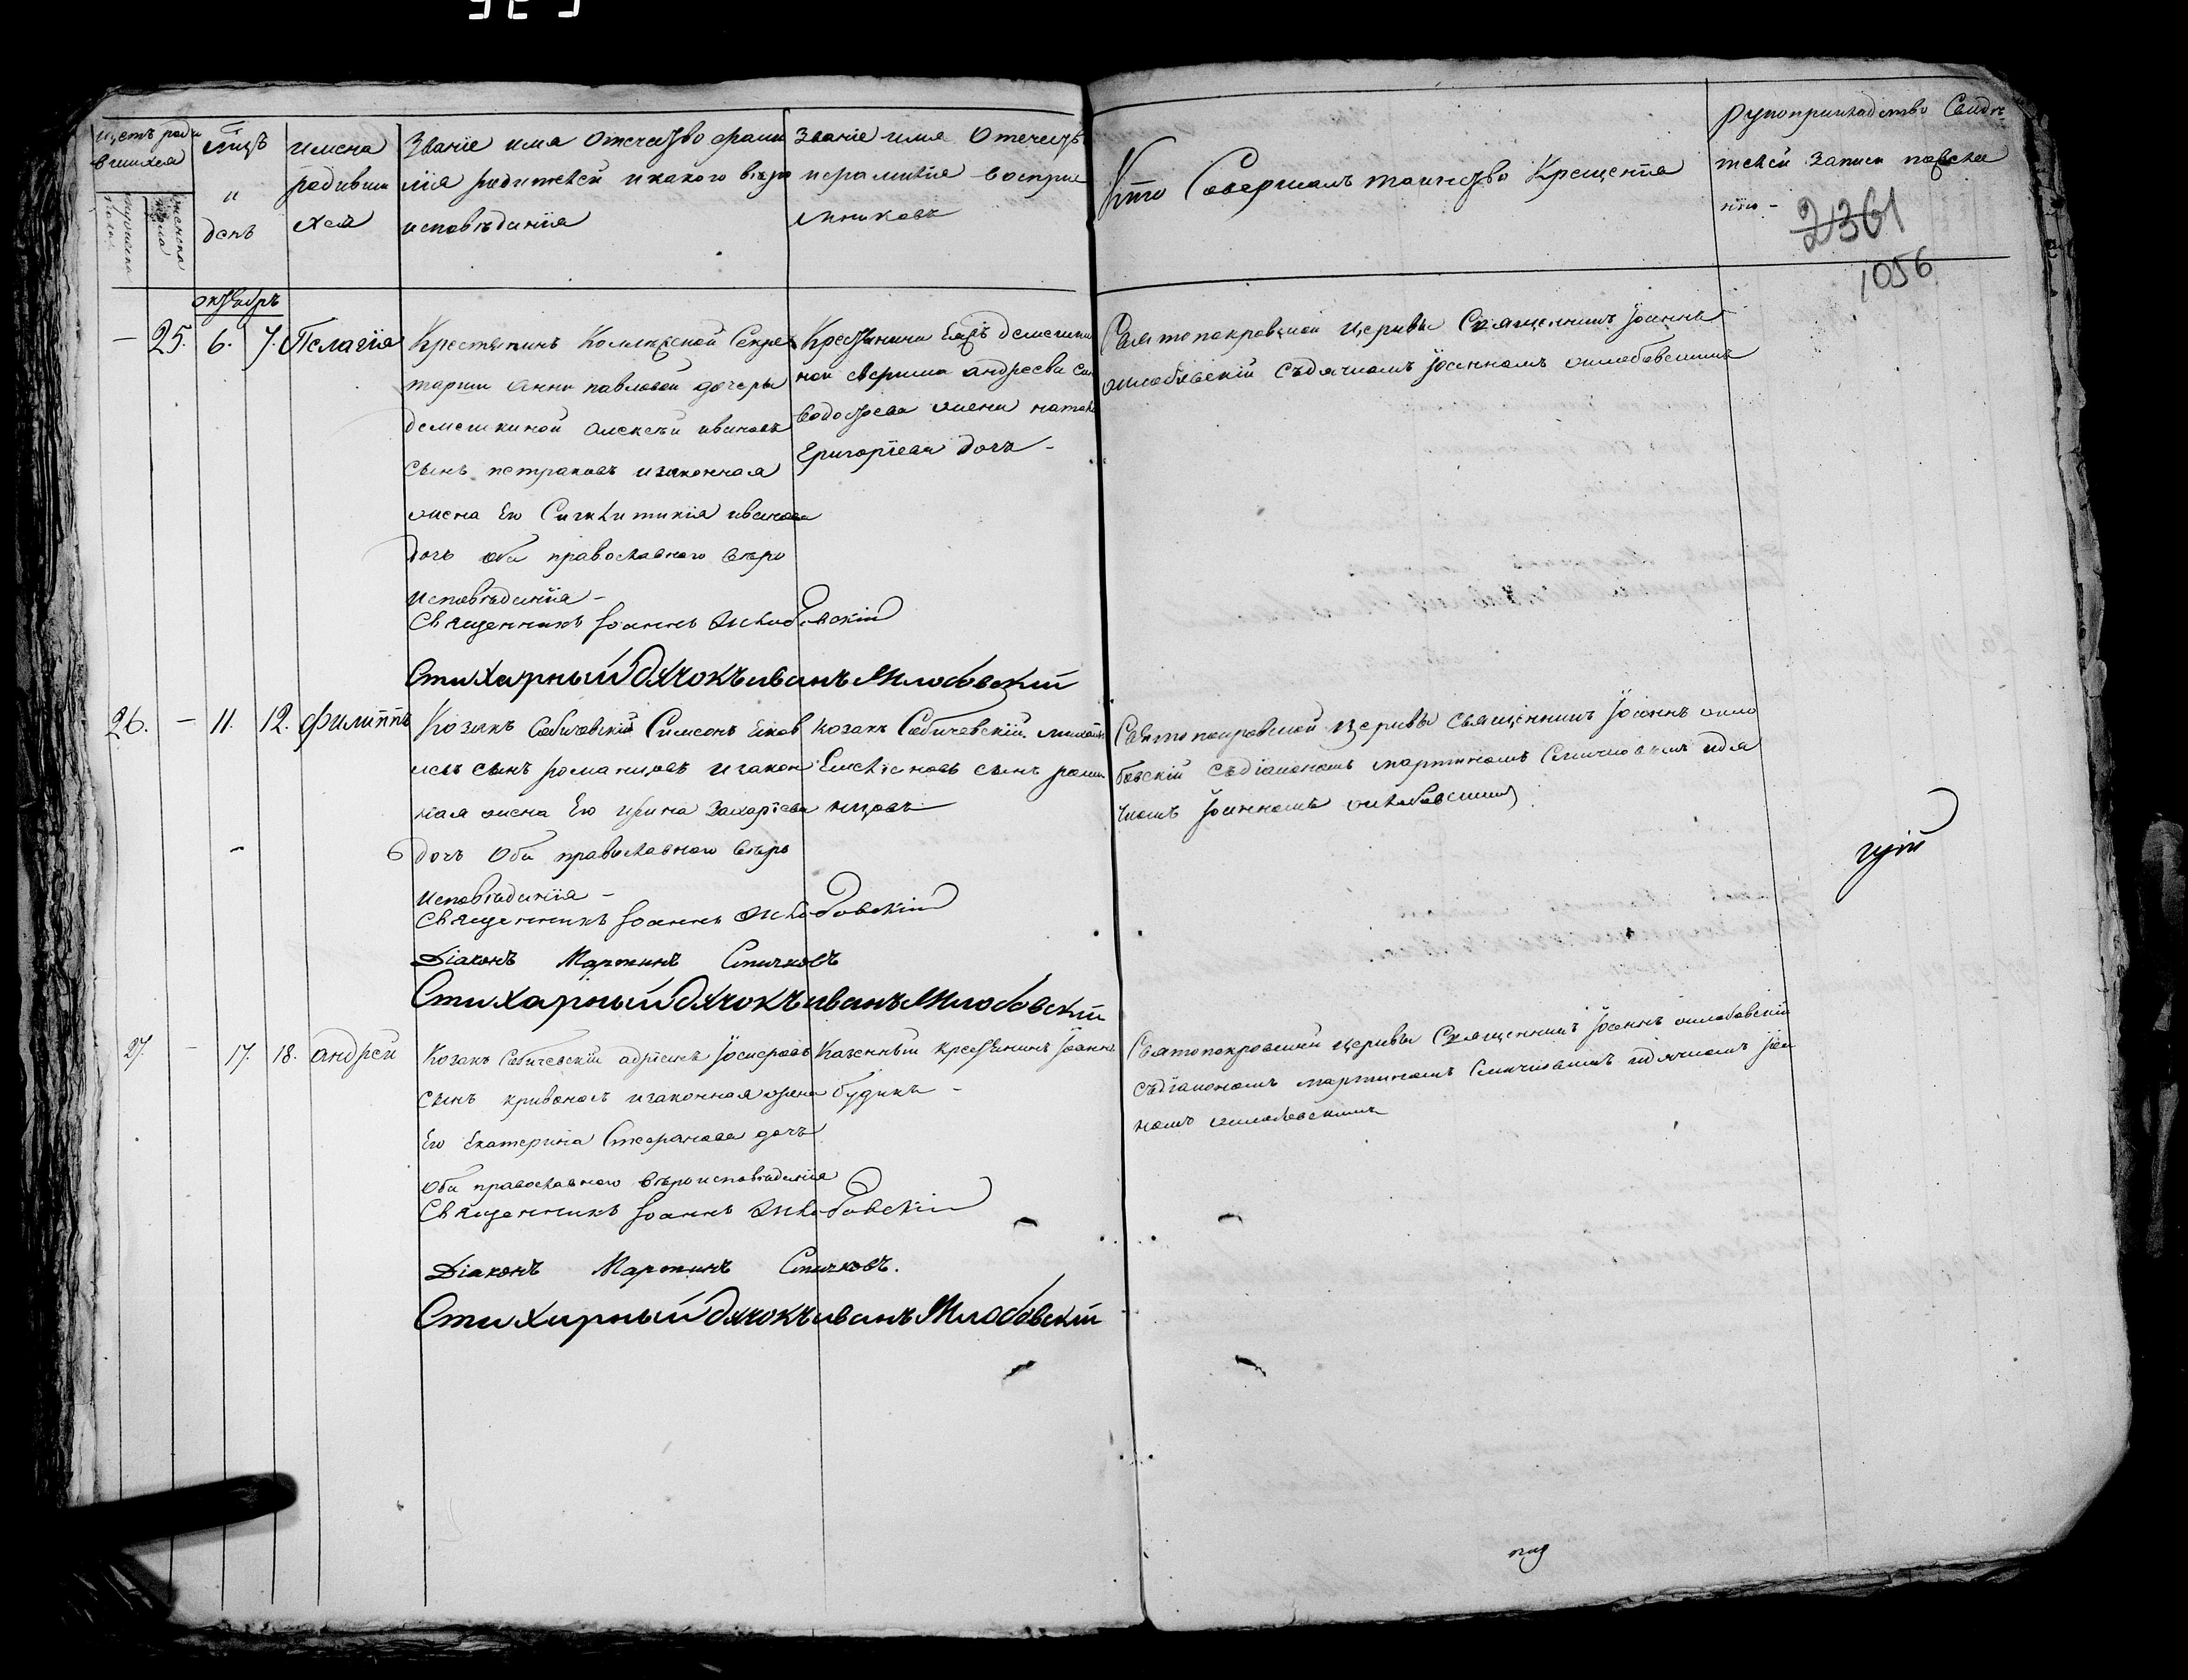 Щетъ роди
вшихся
мужеска
пола
женска
пола
мцъ
и
день
имена
родивши
хся
Званіе имя Отечество фами
лія родителей и какого вѣро
исповѣданія
Званіе имя Отечеств
и фамилія воспрie
мниковъ
Кто Совершалъ таинство Крещенія
Рукоприкладство Свидѣ
телей записи по жела
нію -
2361
1056
октябрь
— 25. 6. 7. Пелагія
Крестьянинъ Коллежской Секре
тарши Анни павловой дочеры
демешкиной алексѣй ивановъ
сынъ петраковъ и законная
жена Его Сигклитикія иванова
дочь оби православного вѣро
исповѣданія -
Священникъ Іоаннъ Жлобовскій
Стихарный Дячокъ иванъ Жлобовскій
Крестянини демешки
ной андреева
жени
Григоріева дочь -
Святопокровской церквы Священникъ Іоаннъ
жлобовскій съ дячкомъ Іоанномъ жлобовскимъ
26. — 11. 12. филиппъ
Козакъ Собичевскій Симеонъ Яков
левъ сынъ романцовъ и закон
ная жена Его ирина Захаріева
дочъ Оби православного вѣро
исповѣданія -
Священникъ Іоаннъ Жлобовскій
Діаконъ Мартинъ Смичковъ
Стихарный Дячокъ иванъ Жлобовскій
козакъ Собичевскій михаилъ
Емеліановъ сынъ рома
нцовъ
Святопокровской Церквы священникъ Іоаннъ жло
бовскій съ діакономъ мартиномъ Смичковымъ и дя
чкомъ Іоанномъ жлобовскимъ
27. — 17. 18. андрей
Козакъ Собичевскій адріянъ Іосифовъ
сынъ кривоносъ и законная жена
Его Екатерина Стефанова дочъ
Оби православного вѣроисповѣданія
Священникъ Іоаннъ Жлобовскій
Діаконъ Мартинъ Смичковъ.
Стихарный Дячокъ иванъ Жлобовскій
Казенный крестянинъ Іоаннъ
будикъ -
Святопокровской церквы Священникъ Іоаннъ жлобовскій
съ діакономъ мартиномъ Смичковымъ и дячкомъ Іоа
номъ жлобовскимъ